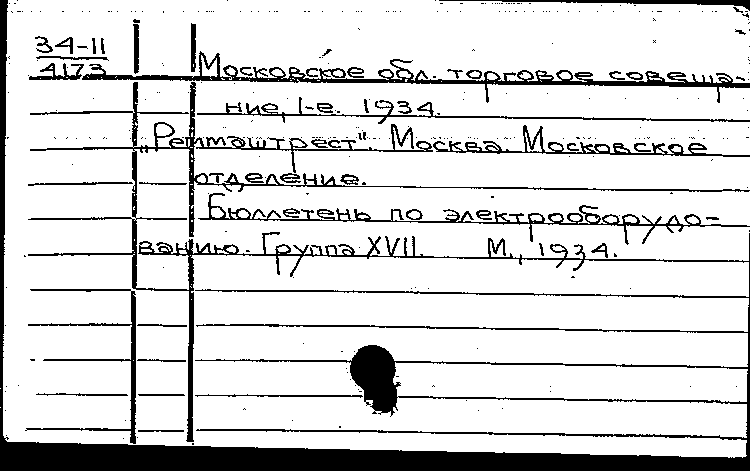 34-II
4173
Московское обл. торговое совеща-
ние, I-е. 1934.
„Реммаштрест". Москва. Московское
отделение.
Бюллетень по электрооборудо-
ванию. Группа XVII. М., 1934.